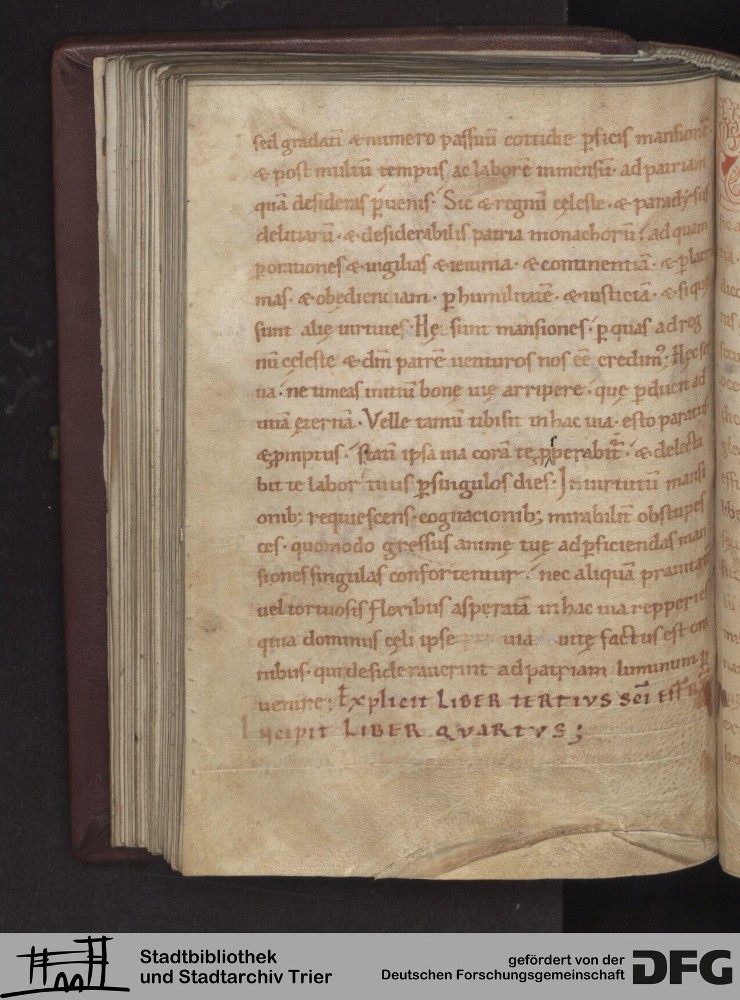 sed gradatī & numero passuū cottidie ꝑficis mansionē
& post multū tempus ac laborē inmensū· ad patriam
quā desideras ꝑuenis· Sic & regnū cęleste· & paradysus
delitiarū· & desiderabilis patria monachorū· ad quam
ꝑ orationes & uigilias & ieiunia· & continentiā· & ꝑ lacri
mas· & obędientiam· ꝑ humilitatē· & iusticiā· & si quę
sunt alię uirtutes· Hę sunt mansiones· ꝑ quas ad reg
nū cęleste & dm̄ patrē uenturos nos eē credim᷒· Hęc
ua· ne timeas initiū bonę uię arripere· quę ꝑducit ad
uitā ęternā· Velle tantū tibi sit in hac uia· esto paratus
& ꝓmptus· statī ipsa uia corā te ꝓsperabit᷑· & delecta
bit te labor tuus ꝑ singulos dies· In uirtutū mansi
onib; requiescens· cogitacionib; mirabilit̄ obstupes
ces· quomodo gressus animę tuę ad ꝑficiendas man
siones singulas confortentur· nec aliquā prauitatē
uel tortuosis flexibus asperatā in hac uia repperies
quia dominus cęli ipse uia uitę factus est om
nibus· qui desiderauerint ad patriam luminum ꝑ
uenire; Explicit LIBER TERTIVS scī
Incipit LIBER QVARTVS;
Stadtbibliothek
und Stadtarchiv Trier
gefördert von der
Deutschen Forschungsgemeinschaft
DFG